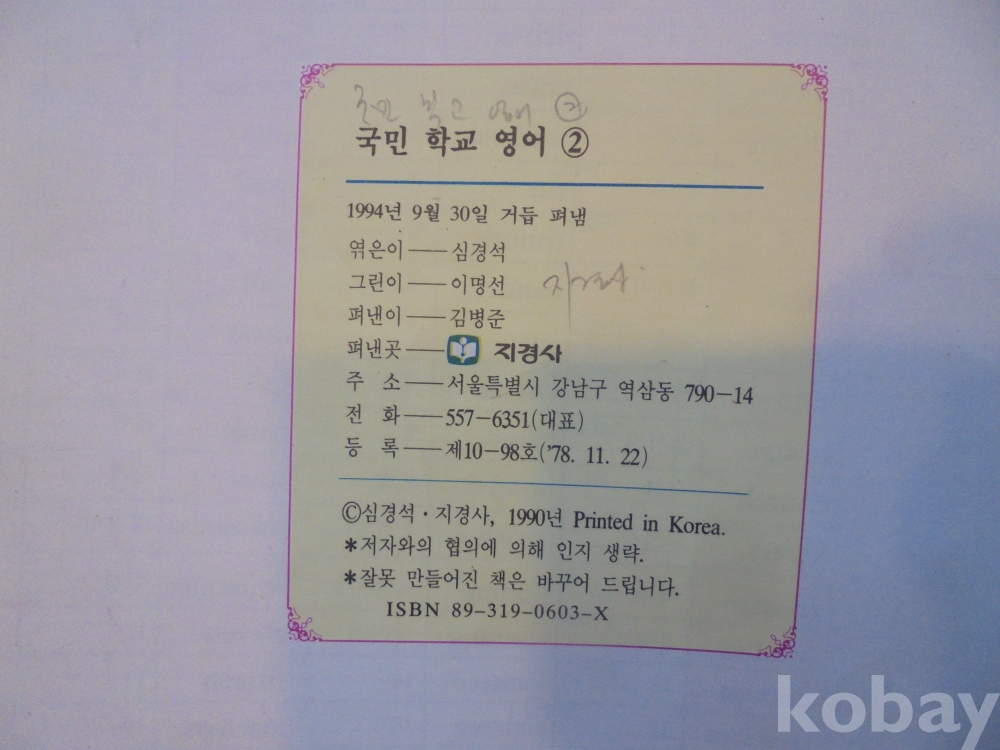 국민 학교 영어 ②
국민 학교 영어 ②
1994년 9월 30일 거듭 펴냄
엮은이——심경석
그린이——이명선
지경사
펴낸이——김병준
펴낸곳—— 지경사
주 소——서울특별시 강남구 역삼동 790-14
전 화——557-6351(대표)
등 록——제10-98호('78. 11. 22)
©심경석·지경사, 1990년 Printed in Korea.
*저자와의 협의에 의해 인지 생략.
*잘못 만들어진 책은 바꾸어 드립니다.
ISBN 89-319-0603-X
kobay